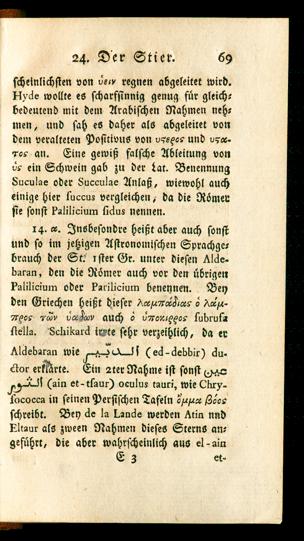 24. Der Stier. 69
scheinlichsten von ὕειν regnen abgeleitet wird.
Hyde wollte es scharfsinnig genug für gleich⸗
bedeutend mit dem Arabischen Nahmen neh⸗
men, und sah es daher als abgeleitet von
dem veralteten Positivus von υτερος und υτα⸗
τος an. Eine gewiß falsche Ableitung von
ὑς ein Schwein gab zu der Lat. Benennung
Suculae oder Succulae Anlaß, wiewohl auch
einige hier succus vergleichen, da die Römer
sie sonst Palilicium sidus nennen.
14. α. Insbesondre heißt aber auch sonst
und so im jetzigen Astronomischen Sprachge⸗
brauch der St. 1ster Gr. unter diesen Alde⸗
baran, den die Römer auch vor den übrigen
Palilicium oder Parilicium benennen. Bey
den Griechen heißt dieser λαμπάδιας ὁ λάμ⸗
προς τῶν ὑάδων auch ὁ ὑποκιρρος subrufa
stella. Schikard irrte sehr verzeihlich, da er
Aldebaran wie الدبّير (ed-debbir) du⸗
ctor erklärte. Ein 2ter Nahme ist sonst عين
الثور (ain et-tsaur) oculus tauri, wie Chry⸗
sococca in seinen Persischen Tafeln ὄμμα βόος
schreibt. Bey de la Lande werden Atin und
Eltaur als zween Nahmen dieses Sterns an⸗
geführt, die aber wahrscheinlich aus el-ain
E 3 et-